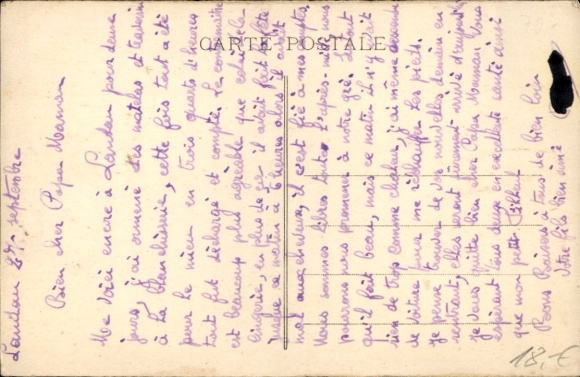 CARTE POSTALE
Landau 27 septembre
Bien cher Papa Maman
Me voici encore à Landau pour deux
jours, j'ai amené des matelas et traversins
à la Blanchisserie, cette fois tout a été
pour le mieux en trois quarts d'heures
tout fut déchargé et compté. Ce
est beaucoup plus agréable que celui de la
lingerie, en plus de ça il avait fait cette
jusque ce matin à 6 heures alors il avait
mal aux cheveux, il s'est fié à mes comptes,
Nous sommes libres toute l'après-midi nous
pourrons nous promener à notre gré. Le
qu'il fait beau, mais ce matin il n'y avait
rien de trop comme chaleur, j'ai même
de voiture pour me réchauffer les pieds.
Je pense trouver de vos nouvelles demain en
rentrant, elles seront sûrement
Je vous quitte bien cher Papa Maman Vous
espérant tous deux en excellente santé ainsi
que mon petit
Bons Baisers à tous de bien loin
Votre fils bien aimé
18,-€